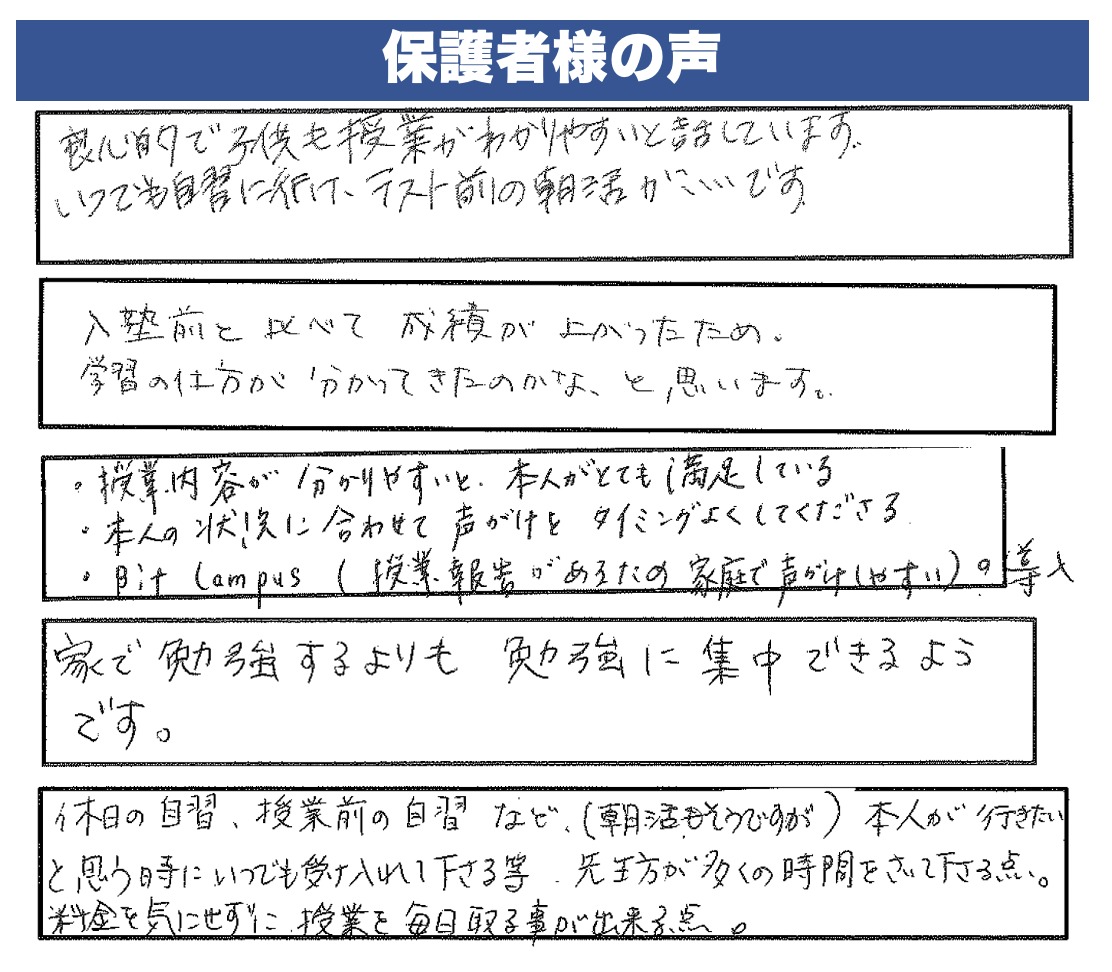 保護者様の声
良心的で子供も授業がわかりやすいと話しています。
いつでも自習に行け、テスト前の朝活がいいです
入塾前と比べて成績が上がったため。
学習の仕方が分かってきたのかな、と思います。
・授業内容が分かりやすいと、本人がとても満足している
・本人の状況に合わせて声がけをタイミングよくしてくださる
・Bit Campus (授業報告があるため家庭で声がけしやすい)の導入
家で勉強するよりも勉強に集中できるよう
です。
休日の自習、授業前の自習など、(朝活もそうですが)本人が行きたい
と思う時にいつでも受け入れて下さる等、先生方が多くの時間をさいて下さる点。
料金を気にせずに授業を毎日取る事が出来る点。